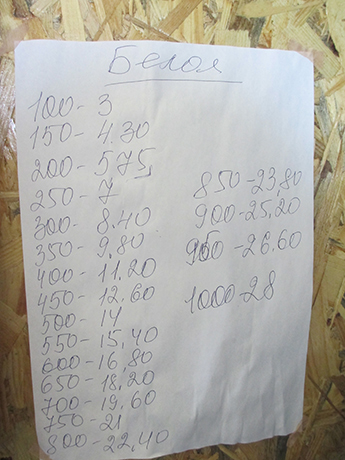 Белая
100- 3
150- 4.30
200- 5,75
250- 7
300- 8.40
350- 9,80
400- 11.20
450- 12.60
500- 14
550- 15,40
600- 16,80
650- 18,20
700- 19.60
750- 21
800- 22,40
850-23,80
900-25,20
950-26.60
1000-28